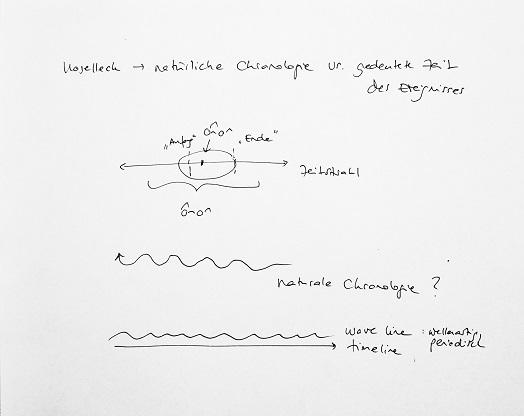 Koselleck → natürliche Chronologie vs. gedeutete Zeit
des Ereignisses
"Anfang" "Ende"
Zeitstrahl
naturale Chronologie ?
wave line : wellenartig,
timeline periodisch